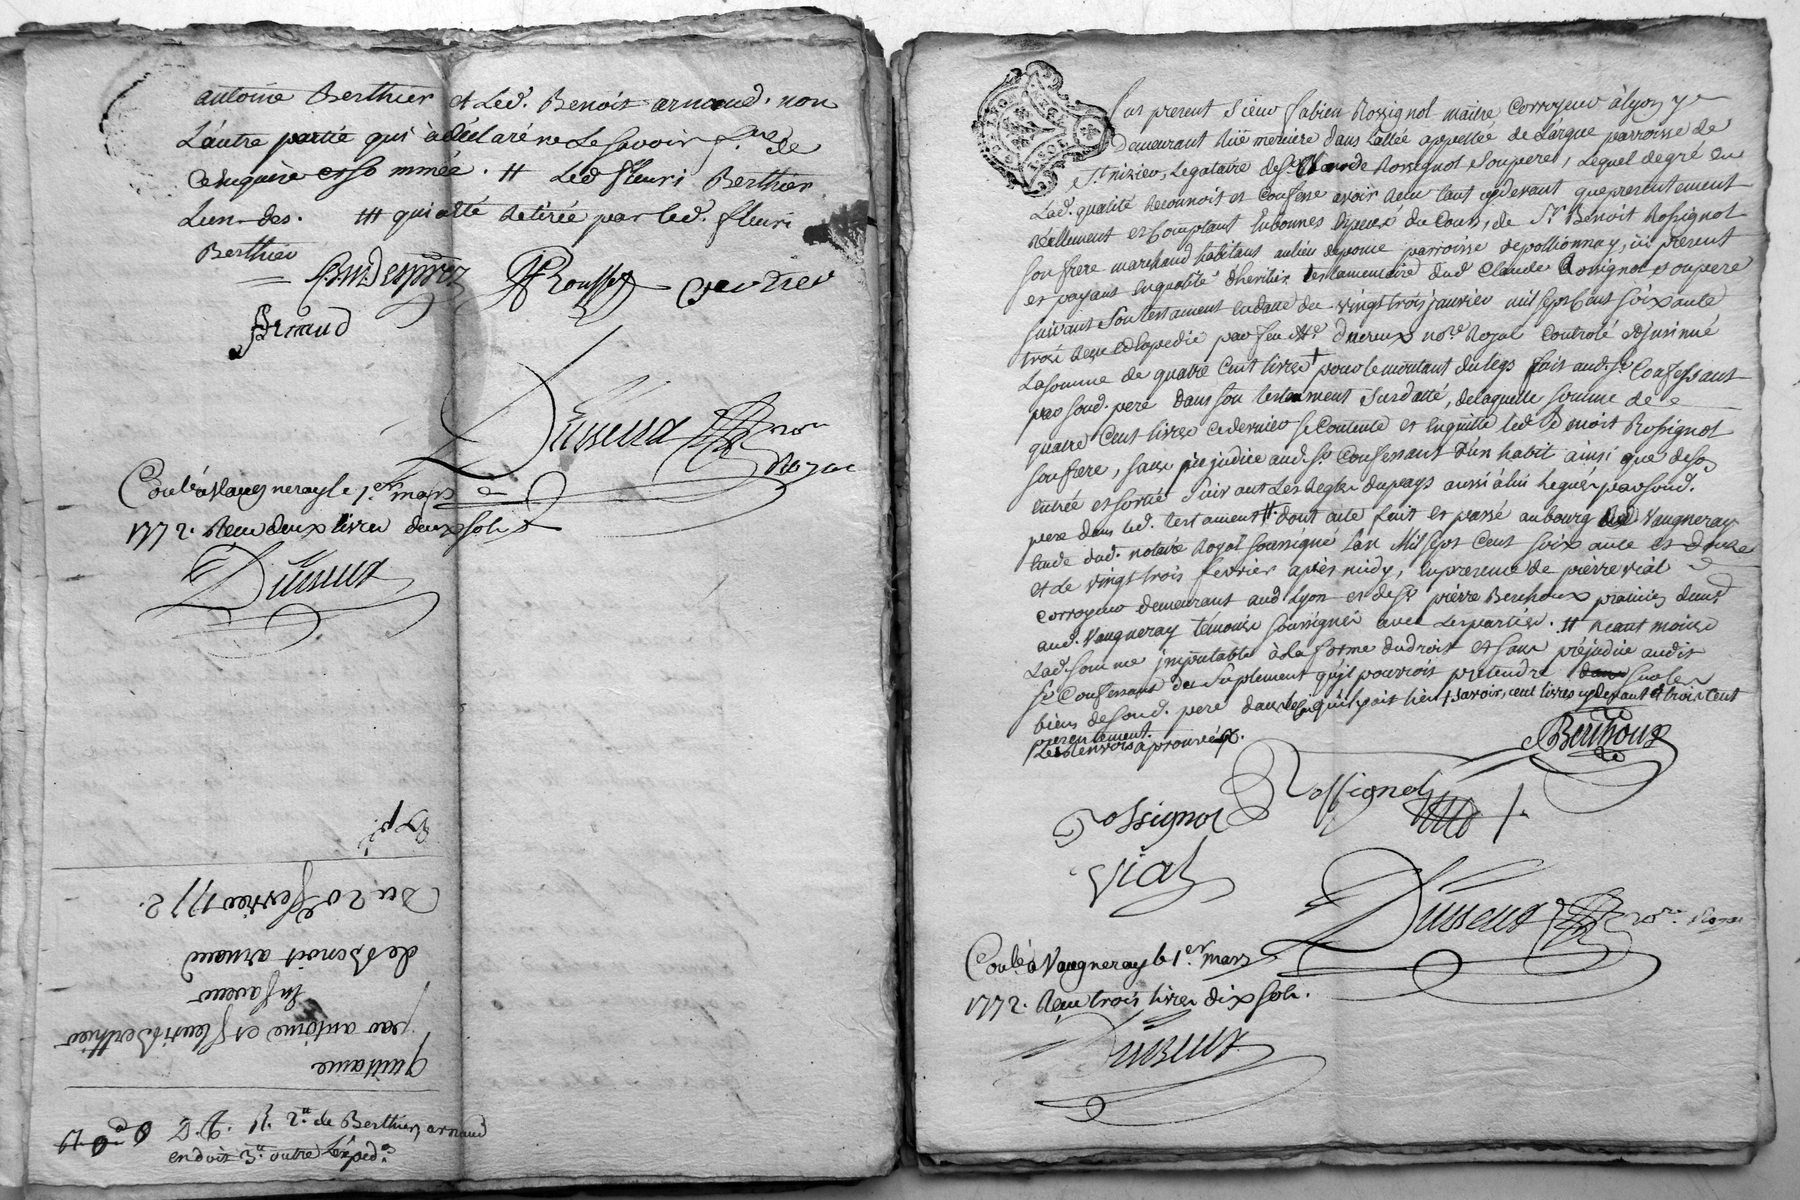 antoine Berthier et Led. Benoit arnaud. non
Lautre partie qui a déclaré ne Le savoir f. de
ce enquise et sommée. # Led fleuri Berthier
Lun des. ## qui a été retirée par led. fleuri
Berthier
Rousset
Arnaud
Dusseux
royal
Conlé à Vaugneray le 1.er mars
1772. Reçu deux livres deux sols
Dusseux
Expé
Du 20 fevrier 1772.
de Benoit arnaud
En faveur
par antoine et fleuri Berthier
quittance
R. 2.tt de Berthier arnaud
en doit 3.tt outre L'exped.on
Par present Sieur fabien Rossignol maitre Corroyeur à lyon y
Demeurant rüe merciere dans l'allée appellée de L'argue parroisse de
St. nizier, Legataire de Sr. Claude Rossignol Son pere, Lequel de gré en
Lad. qualité Reconnoit et Confesse avoir Reçu tant cy devant que presentement
réellement et Comptant En bonnes Especes du Cours, de Sr. Benoit Rossignol
Son frere marchand habitant au lieu de parroisse de pollionnay, ici present
et payant en qualité d'heritier testamentaire dud. Claude Rossignol Son pere
suivant Son testament en datte du vingt trois janvier mil sept Cent soixante
trois Reçu et Expedié par feu Me. Ducreux nore. Royal Controlé et jnsinué
La somme de quatre Cent livres † pour le montant du legs fait aud. Sr. Confessant
par Soud. pere dans Son testament Susdatté, de laquelle Somme de
quatre Cent livres ce dernier se Contente et En quitte led. Benoit Rossignol
Son frere, sans prejudice aud. Sr. Confessant d'un habit ainsi que de son
entrée et sortie Suivant Les Regles du pays aussi à lui Legués par Soud.
pere dans led. testament #. dont acte fait et passé au bourg de Vaugneray
Etude dud. notaire Royal Soussigné L'an Mil sept Cent Soixante et douze
et Le vingt trois fevrier après midy, En presence de pierre vial
Corroyeur demeurant aud. Lyon et de Sr. pierre Berthoux praticien demt.
aud. Vaugneray temoins Soussignés avec Les parties. # neant moins
Lad. somme jmputable à la forme du droit et sans préjudice audit
Sr. Confessant du Suplement qu'il pourroit pretendre sur les
biens de soud. pere dans le cas qu'il y ait lieu † savoir, cent livres cy devant et trois Cent
presentement.
Les Renvois aprouvés.
Berthoux
Rossignol
Rossignol
vial
Dusseux nore. Royal
Conlé à Vaugneray le 1.er mars
1772. Reçu trois livres dix sols.
Dusseux